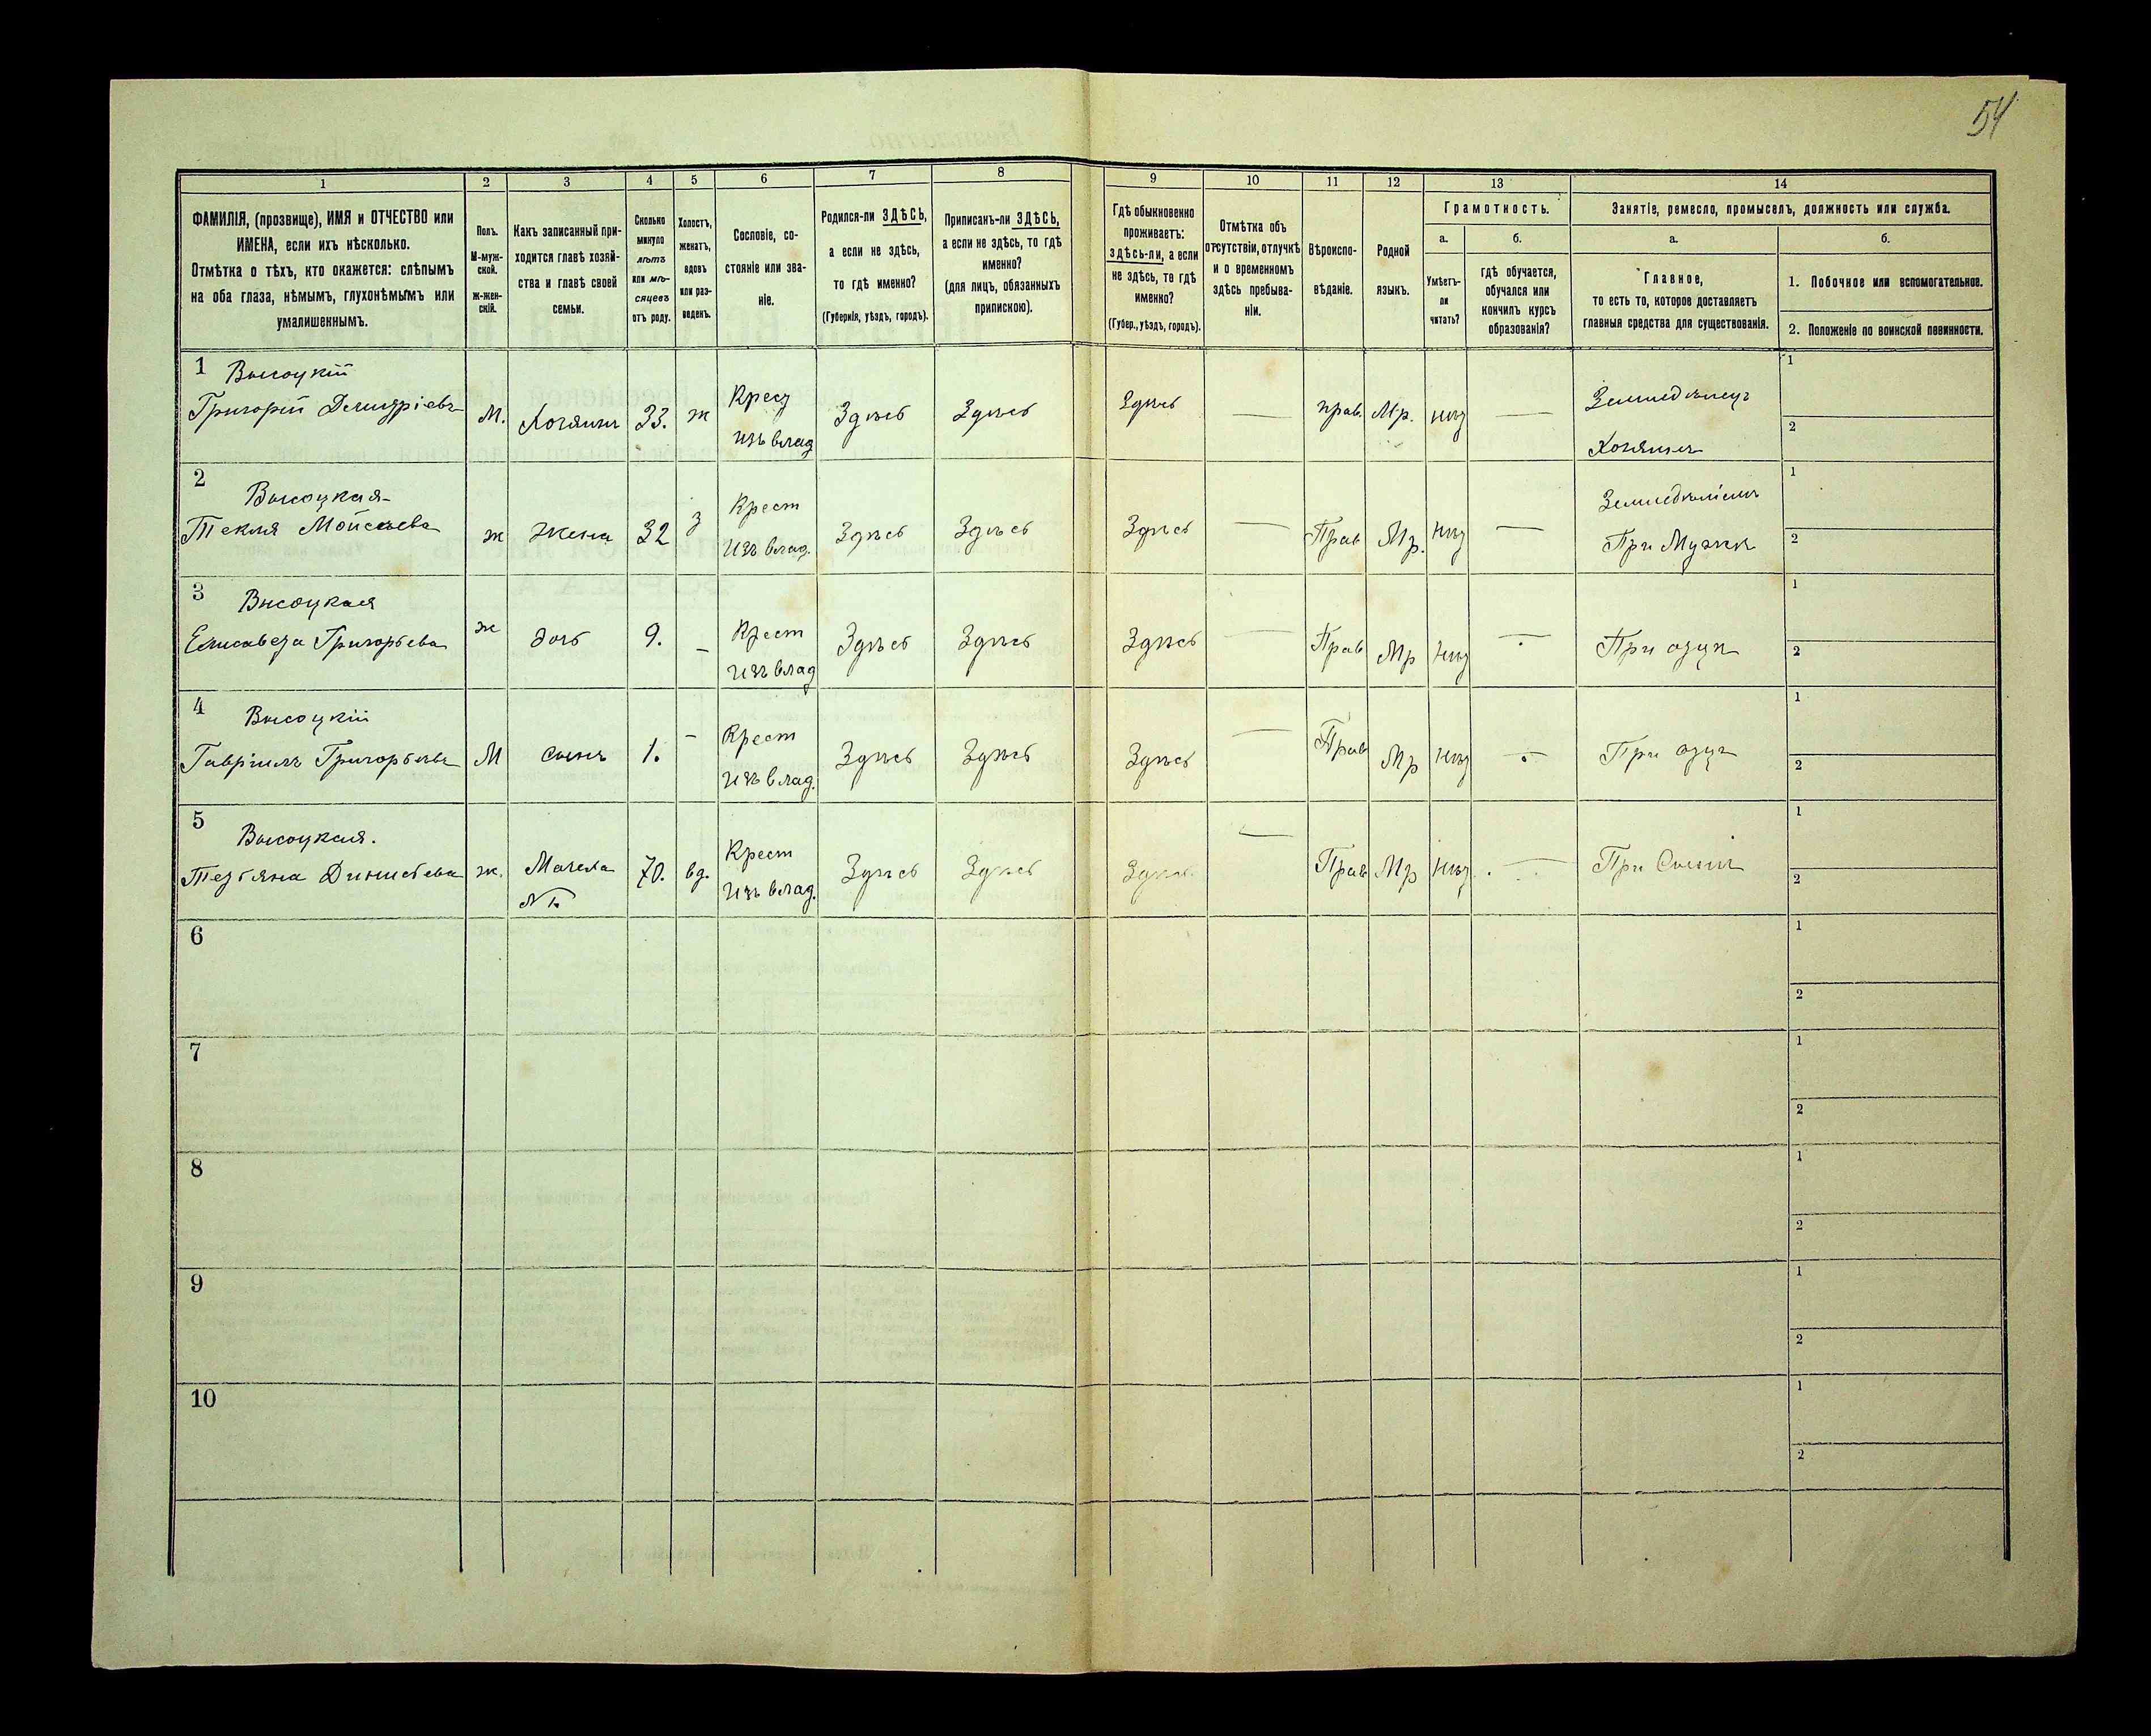 54
1 2 3 4 5 6 7 8 9 10 11 12 13 14
ФАМИЛІЯ, (прозвище), ИМЯ и ОТЧЕСТВО или
ИМЕНА, если ихъ нѣсколько.
Отмѣтка о тѣхъ, кто окажется: слѣпымъ
на оба глаза, нѣмымъ, глухонѣмымъ или
умалишеннымъ.
Полъ.
М-муж-
ской.
ж-жен-
скій.
Какъ записанный при-
ходится главѣ хозяй-
ства и главѣ своей
семьи.
Сколько
минуло
лѣтъ
или мѣ-
сяцевъ
отъ роду.
Холостъ,
женатъ,
вдовъ
или раз-
веденъ.
Сословіе, со-
стояніе или зва-
ніе.
Родился-ли ЗДѢСЬ,
а если не здѣсь,
то гдѣ именно?
(Губернія, уѣздъ, городъ).
Приписанъ-ли ЗДѢСЬ,
а если не здѣсь, то гдѣ
именно?
(для лицъ, обязанныхъ
припискою).
Гдѣ обыкновенно
проживаетъ:
здѣсь-ли, а если
не здѣсь, то гдѣ
именно?
(Губер., уѣздъ, городъ).
Отмѣтка объ
отсутствіи, отлучкѣ
и о временномъ
здѣсь пребыва-
ніи.
Вѣроиспо-
вѣданіе.
Родной
языкъ.
Грамотность.
а.
Умѣетъ-
ли
читать?
б.
гдѣ обучается,
обучался или
кончилъ курсъ
образованія?
Занятіе, ремесло, промыселъ, должность или служба.
а.
Главное,
то есть то, которое доставляетъ
главныя средства для существованія.
б.
1. Побочное или вспомогательное.
2. Положеніе по воинской повинности.
1 Высоцкій
Григорій Демидріевъ М. Хозяинъ 33. ж Крест изъ влад Здѣсь Здѣсь Здѣсь — прав. Мр. нѣт — Земледѣлецъ
Хозяинъ
1
2
2 Высоцкая
Текля Мойсеева ж Жена 32 з Крест изъ влад. Здѣсь Здѣсь Здѣсь — Прав Мр. нѣт — Земледѣліемъ
При Мужѣ
1
2
3 Высоцкая
Елисавета Григорьева ж дочь 9. — Крест изъ влад Здѣсь Здѣсь Здѣсь — Прав Мр нѣт — При отцѣ
1
2
4 Высоцкій
Гавріилъ Григорьевъ М сынъ 1. — Крест изъ влад. Здѣсь Здѣсь Здѣсь — Прав Мр нѣт — При отцѣ
1
2
5 Высоцкая.
Тетьяна Динисьева ж. Мачеха 70. вд. Крест изъ влад. Здѣсь Здѣсь Здѣсь — Прав Мр нѣт — При Сынѣ
№ 1.
1
2
6
1
2
7
1
2
8
1
2
9
1
2
10
1
2